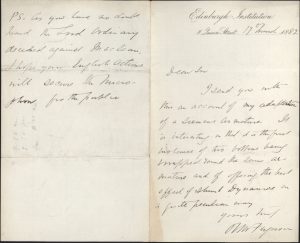 PS. As you have no doubt
heard the Lord Ordinary
decided against Maclean.
I hope your English actions
will secure the Micro-
phone for the public
Edinburgh Institution
8 Queen Street 17 March 1882
Dear Sir
I send you with
this an account of my adaptation
of a Siemens armature. It
is interesting as that it is the first
instance of two bobbins being
wrapped round the same ar-
mature and of offering the best
effect of shunt Dynamos in
a quite peculiar way
Yours truly
R M Ferguson